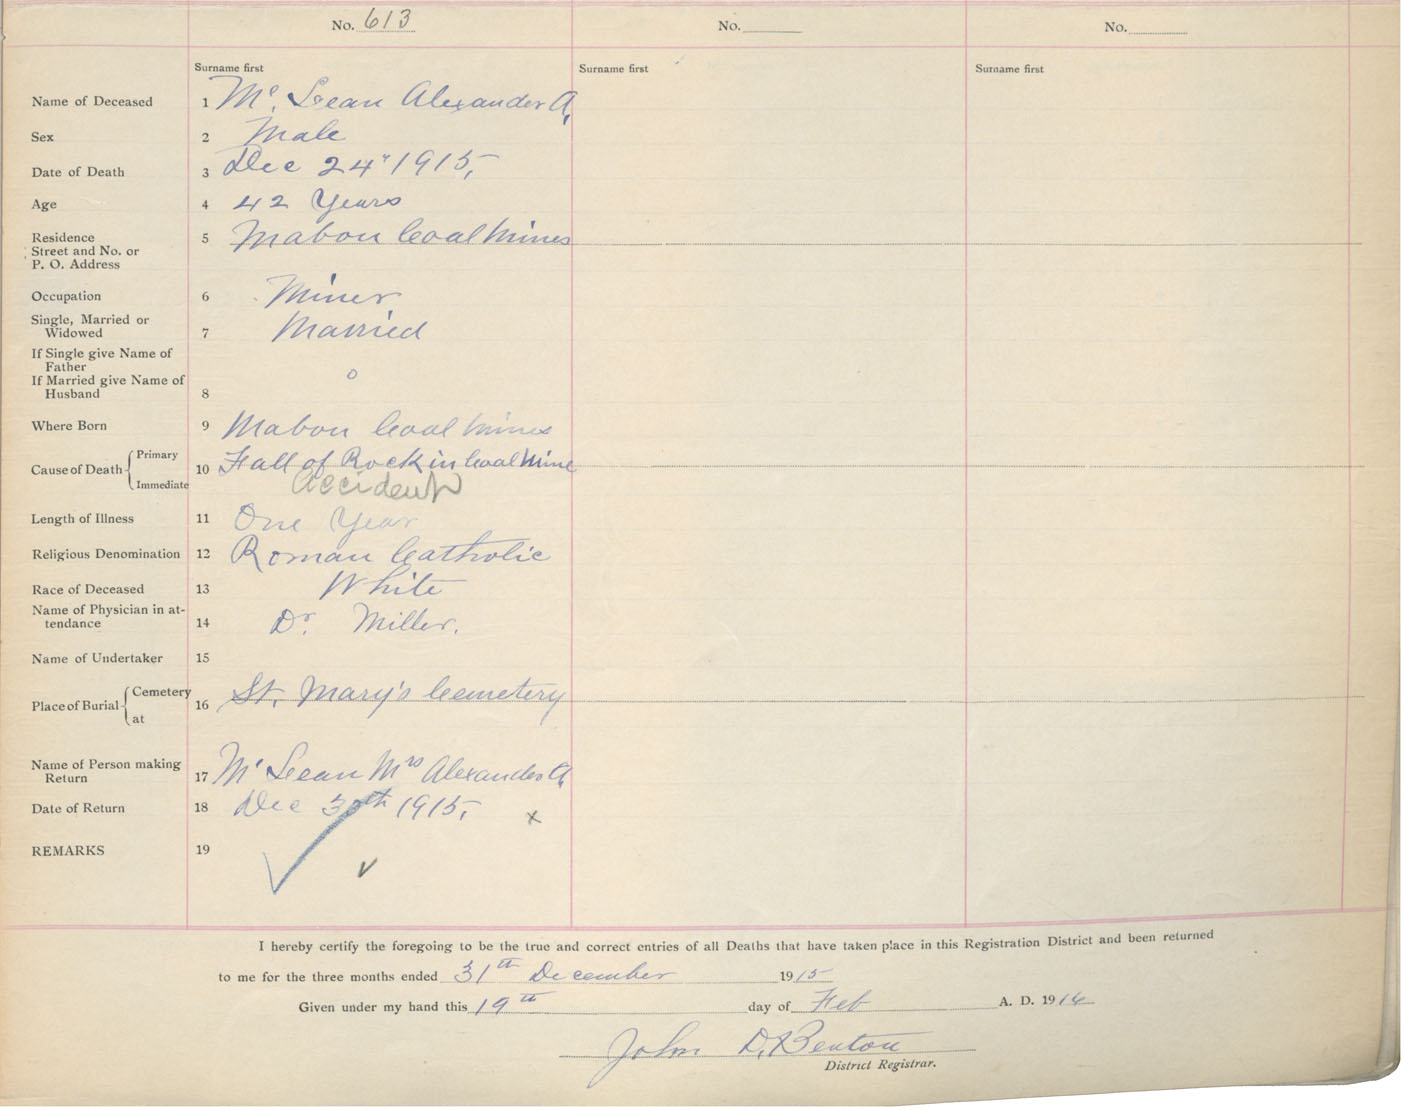 No. 613 No. No.
Surname first Surname first Surname first
Name of Deceased 1 Mc. Lean Alexander A.
Sex 2 Male
Date of Death 3 Dec 24" 1915,
Age 4 42 Years
Residence 5 Mabou Coal Mines
Street and No. or
P. O. Address
Occupation 6 Miner
Single, Married or
Widowed 7 Married
If Single give Name of
Father
If Married give Name of o
Husband 8
Where Born 9 Mabou Coal Mines
Cause of Death { Primary 10 Fall of Rock in Coal Mine
Immediate Accident
Length of Illness 11 One Year
Religious Denomination 12 Roman Catholic
Race of Deceased 13 White
Name of Physician in at-
tendance 14 Dr. Miller.
Name of Undertaker 15
Place of Burial { Cemetery 16 St. Mary's Cemetery
at
Name of Person making
Return 17 Mc Lean Mrs Alexander A.
Date of Return 18 Dec 30th 1915, x
REMARKS 19
I hereby certify the foregoing to be the true and correct entries of all Deaths that have taken place in this Registration District and been returned
to me for the three months ended 31th December 1915
Given under my hand this 19th day of Feb A. D. 1916
John D. Beaton
District Registrar.